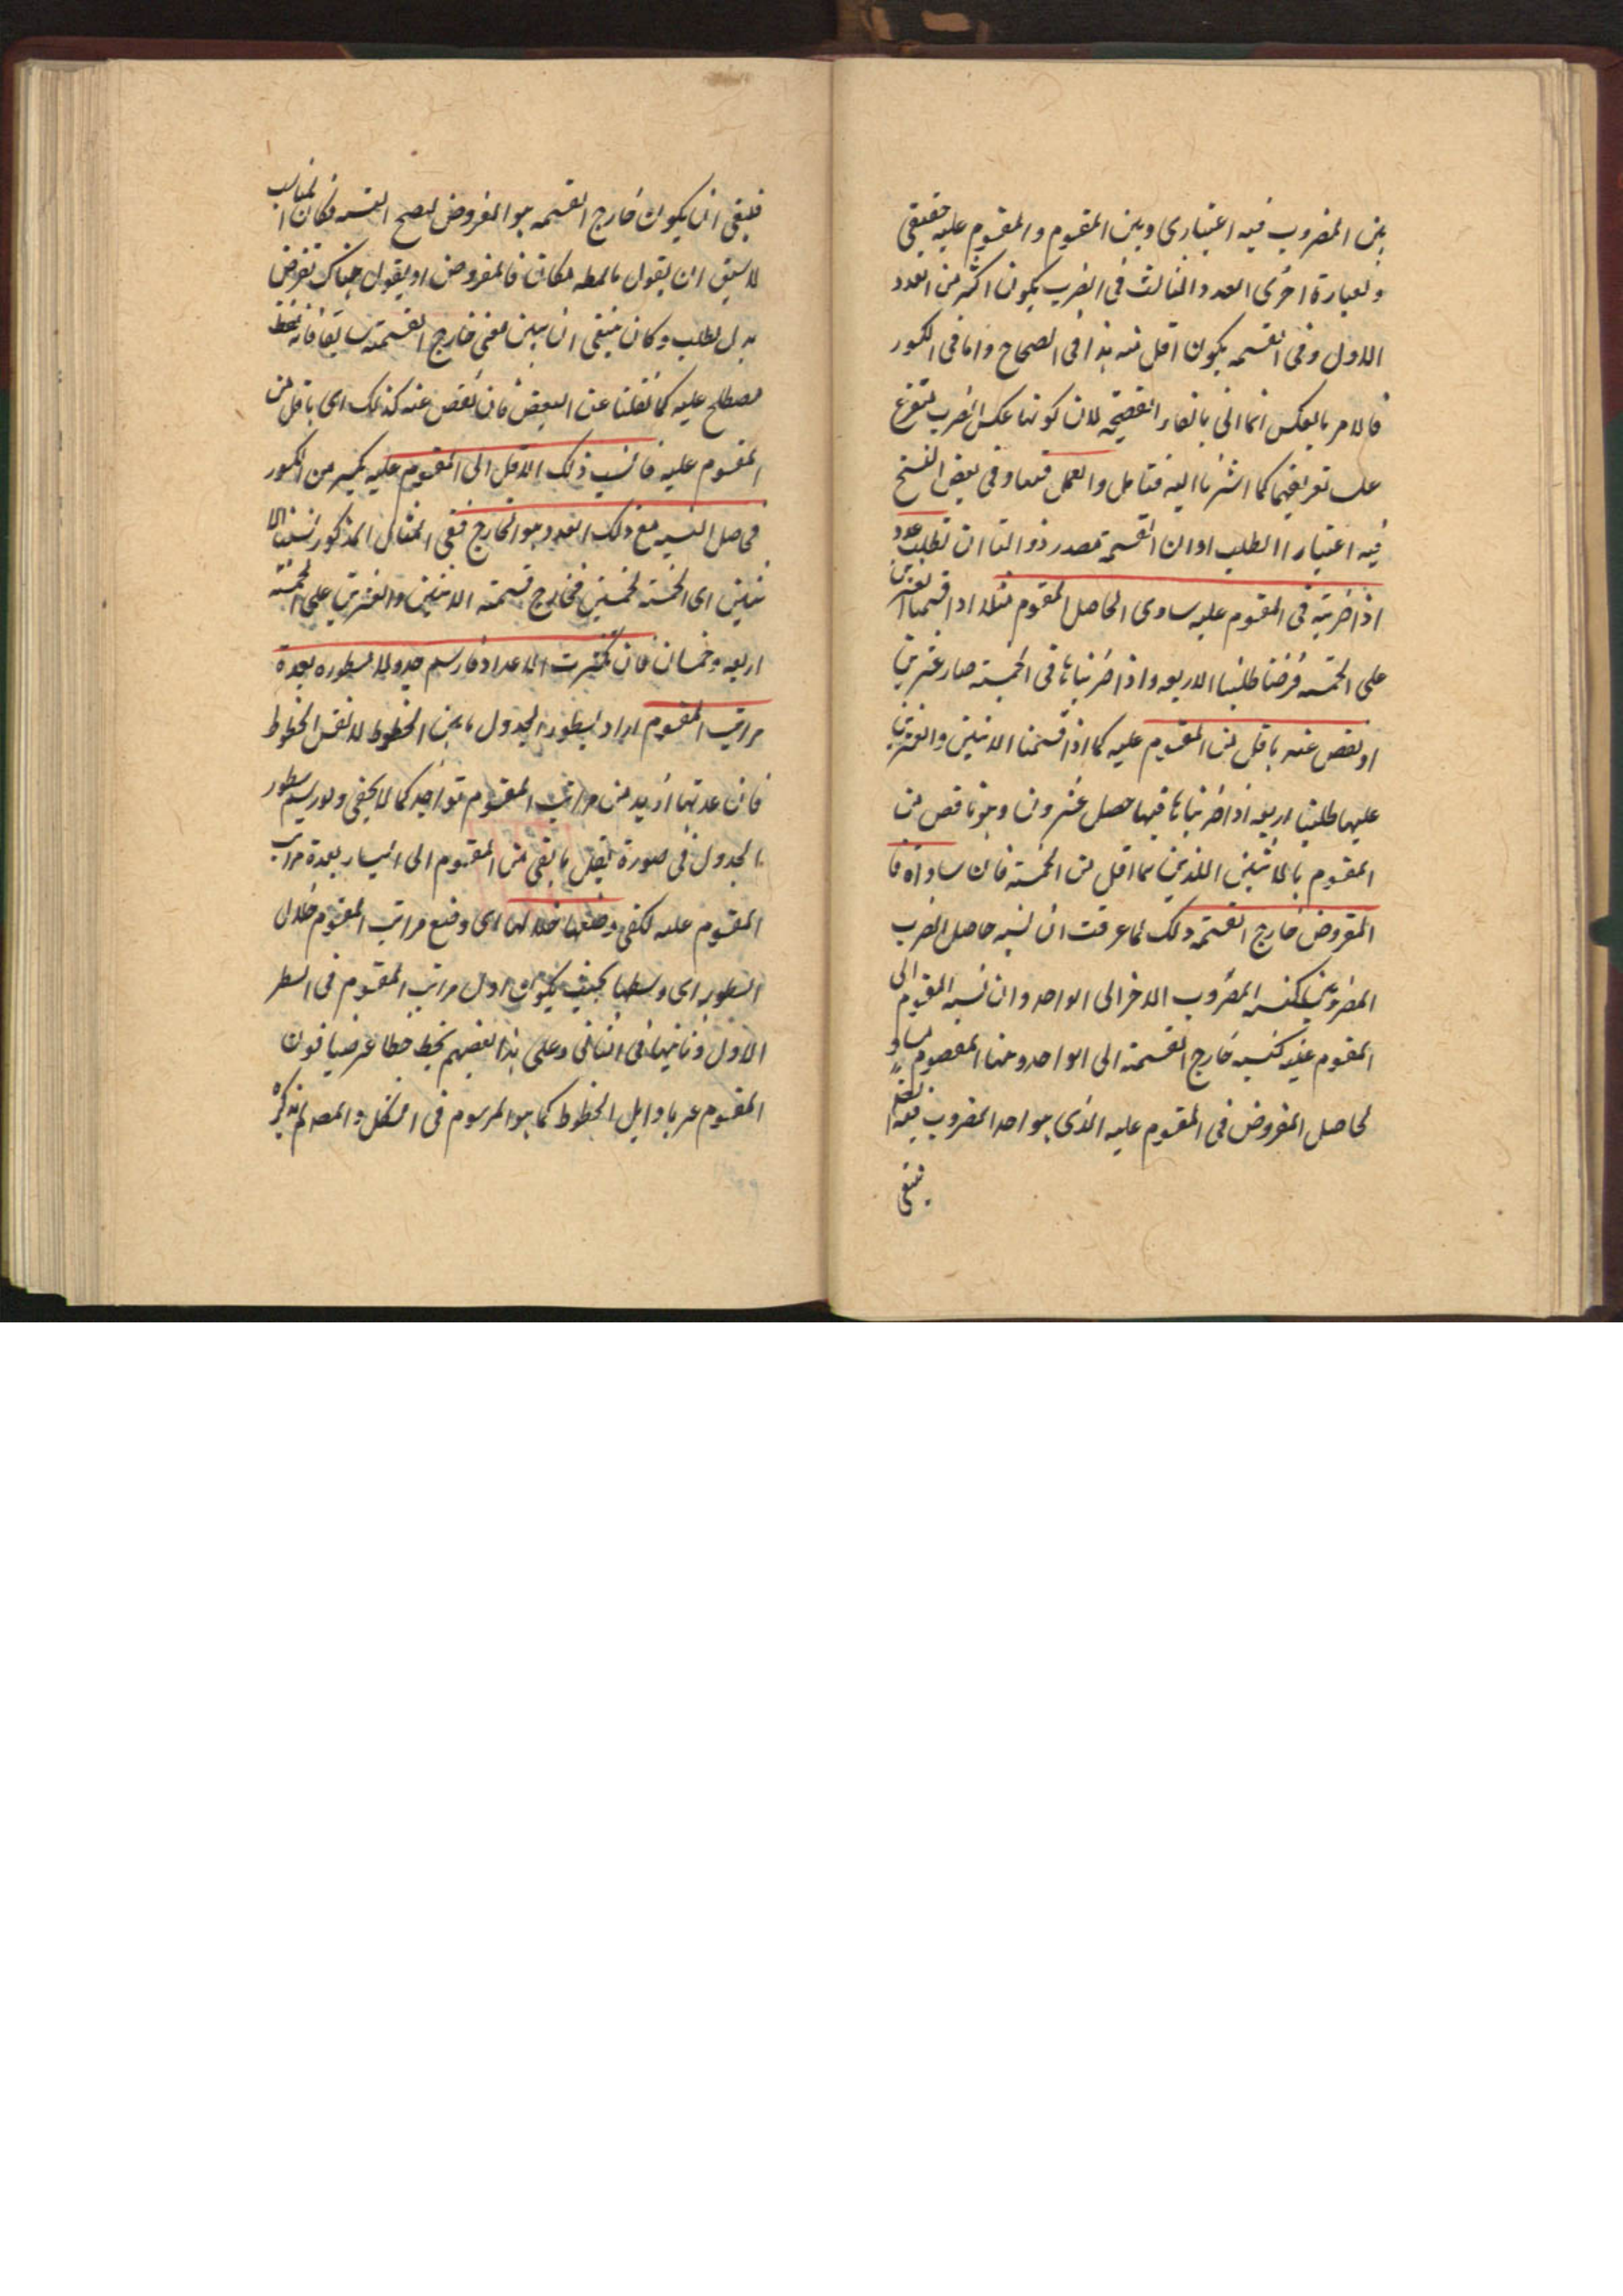 بين المضروب فيه اعتباري وبين المقسوم والمقسوم عليه حقيقي
وبعبارة اخرى العدد الثالث في الضرب يكون اكثر من العدد
الاول وفي القسمه يكون اقل منه هذا في الصحاح واما في الكسور
فالامر بالعكس انما اتى بالفاء الفصيحه لان كونها عكس الضرب متفرع
على تعريفهما كما اشرنا اليه فتامل والعمل فيها وفي بعض النسخ
فيه اعتبار الطلب اوان القسمة مصدر ذو التا ان تطلب عددا
اذا ضربته في المقسوم عليه ساوى الحاصل المقسوم مثلا اذا قسمنا العشرين
على الخمسه فرضنا طلبنا الاربعه واذا ضربناها في الخمسة صار عشرين
او نقص عنه باقل من المقسوم عليه كما اذا قسمنا الاثنين والعشرين
عليها طلبنا اربعه اذا ضربناها فيها حصل عشرون وهو ناقص من
المقسوم بالاثنين اللذين هما اقل من الخمسة فان ساواه فا
المفروض خارج القسمة وذلك لما عرفت ان نسبه حاصل الضرب
المضروبين كنسبه المضروب الاخر الى الواحد وان نسبه المقسوم الى
المقسوم عليه كنسبه خارج القسمة الى الواحد وهنا المقسوم مساو
لحاصل المفروض في المقسوم عليه الذي هو احد المضروب فيه
فينبغي
فينبغي ان يكون خارج القسمه هو المفروض ليصح القسمه فكان المناسب
للاسبق ان يقول مكان فالمفروض او يقول هناك تفرض
بدل تطلب وكان ينبغي ان يبين معنى خارج القسمة سابقا فانه لفظ
مصطلح عليه كما نقلنا عن البعض فان نقص عنه كذلك اى باقل من
المقسوم عليه فانسب ذلك الاقل الى المقسوم عليه يخرج من الكسور
فحاصل النسبه مع ذلك العدد هو الخارج ففي المثال المذكور نسبنا الا
ثنين اى الخمسة خمسين فخارج قسمة الاثنين والعشرين على الخمسة
اربعه وخمسان فان تكثرت الاعداد فارسم جدولا سطوره بعدة
مراتب المقسوم اراد بسطور الجدول ما بين الخطوط لا نفس الخطوط
فان عدتها ازيد من مراتب المقسوم بواحد كما لا يخفى ولو رسم سطور
الجدول في صورة نقل ما بقى من المقسوم الى اليسار بعدة مراتب
المقسوم عليه لكفى وضعها خلالها اى وضع مراتب المقسوم خلال
السطور اى وسطها بحيث يكون اول مراتب المقسوم في السطر
الاول وثانيها في الثاني وعلى هذا بعضهم يخط خطا عرضيا فوق
المقسوم باوايل الخطوط كما هو المرسوم في الشكل والمصه لم يذكره